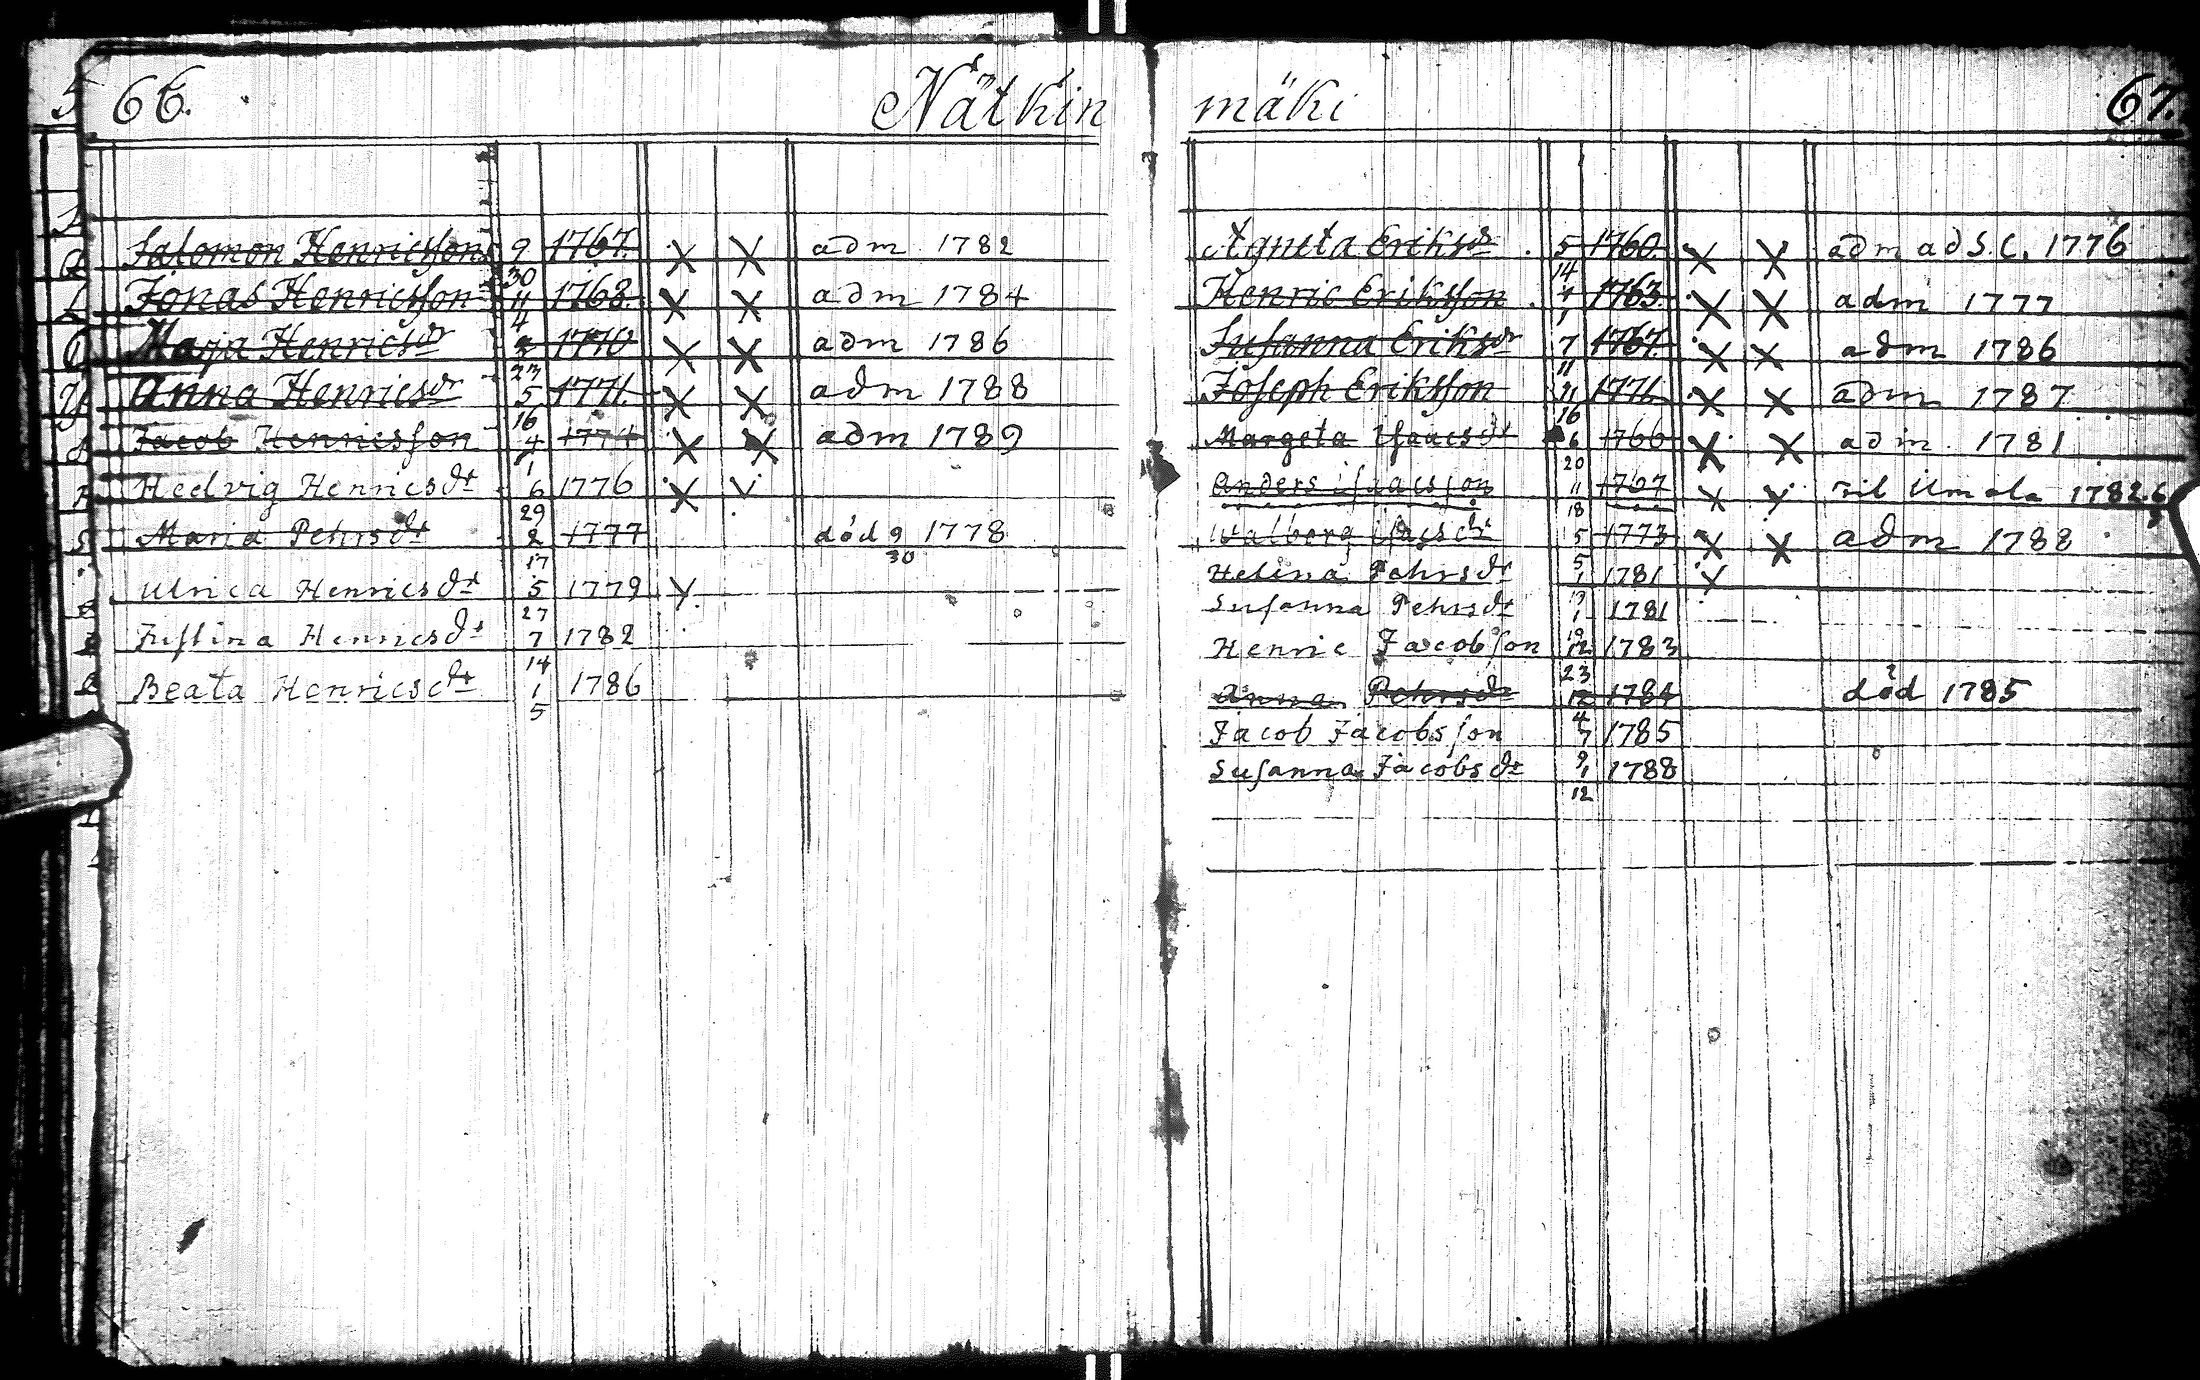 66. Nätkin
Salomon Henricsson 9 30 1767. X X adm 1782
Jonas Henricsson 11 4 1768. X X adm 1784
Maja Henricsdr 2 23 1770 X X adm 1786
Anna Henricsdr 5 16 1771. X X adm 1788
Jacob Henricsson 4 1 1774 X X adm 1789
Hedvig Henricsdr 6 29 1776 X V
Maria Pehrsdr 2 17 1777 död 9 30 1778
Ulrica Henricsdr 5 27 1779 Y
Justina Henricsdr 7 14 1782
Beata Henricsdr 1 5 1786
mäki 67.
Agneta Eriksdr 5 14 1760. X X adm ad S.C. 1776
Henric Eriksson 1 1763. X X adm 1777
Susanna Eriksdr 7 11 1767. X X adm 1786
Joseph Eriksson 11 16 1771. X X adm 1787
Margeta Isaacsdr 6 20 1766 X X adm. 1781
Anders Isaacsson 11 18 1767 X Y til Ilmola 1782.6
Walborg Isacsdr 5 5 1773 X X adm 1788
Helina Pehrsdr 1 1781 Y
Susanna Pehrsdr 1 1781
Henric Jacobsson 12 23 1783
Anna Pehrsdr 12 4 1784 död 1785
Jacob Jacobsson 7 9 1785
Susanna Jacobsdr 1 12 1788